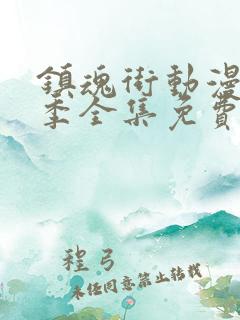 鎮魂街動漫
季全集免費
程弓
未经同意禁止转载